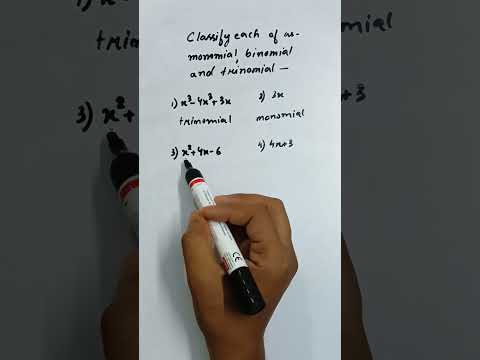 Classify each of as-
monomial, binomial
and trinomial —
1) x³-4x³+3x
2) 3x
trinomial
monomial
3) x²+4x-6
4) 4x+3
3) x²+